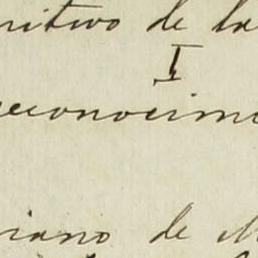 nitivo de la
I
reconocimi
iano de M